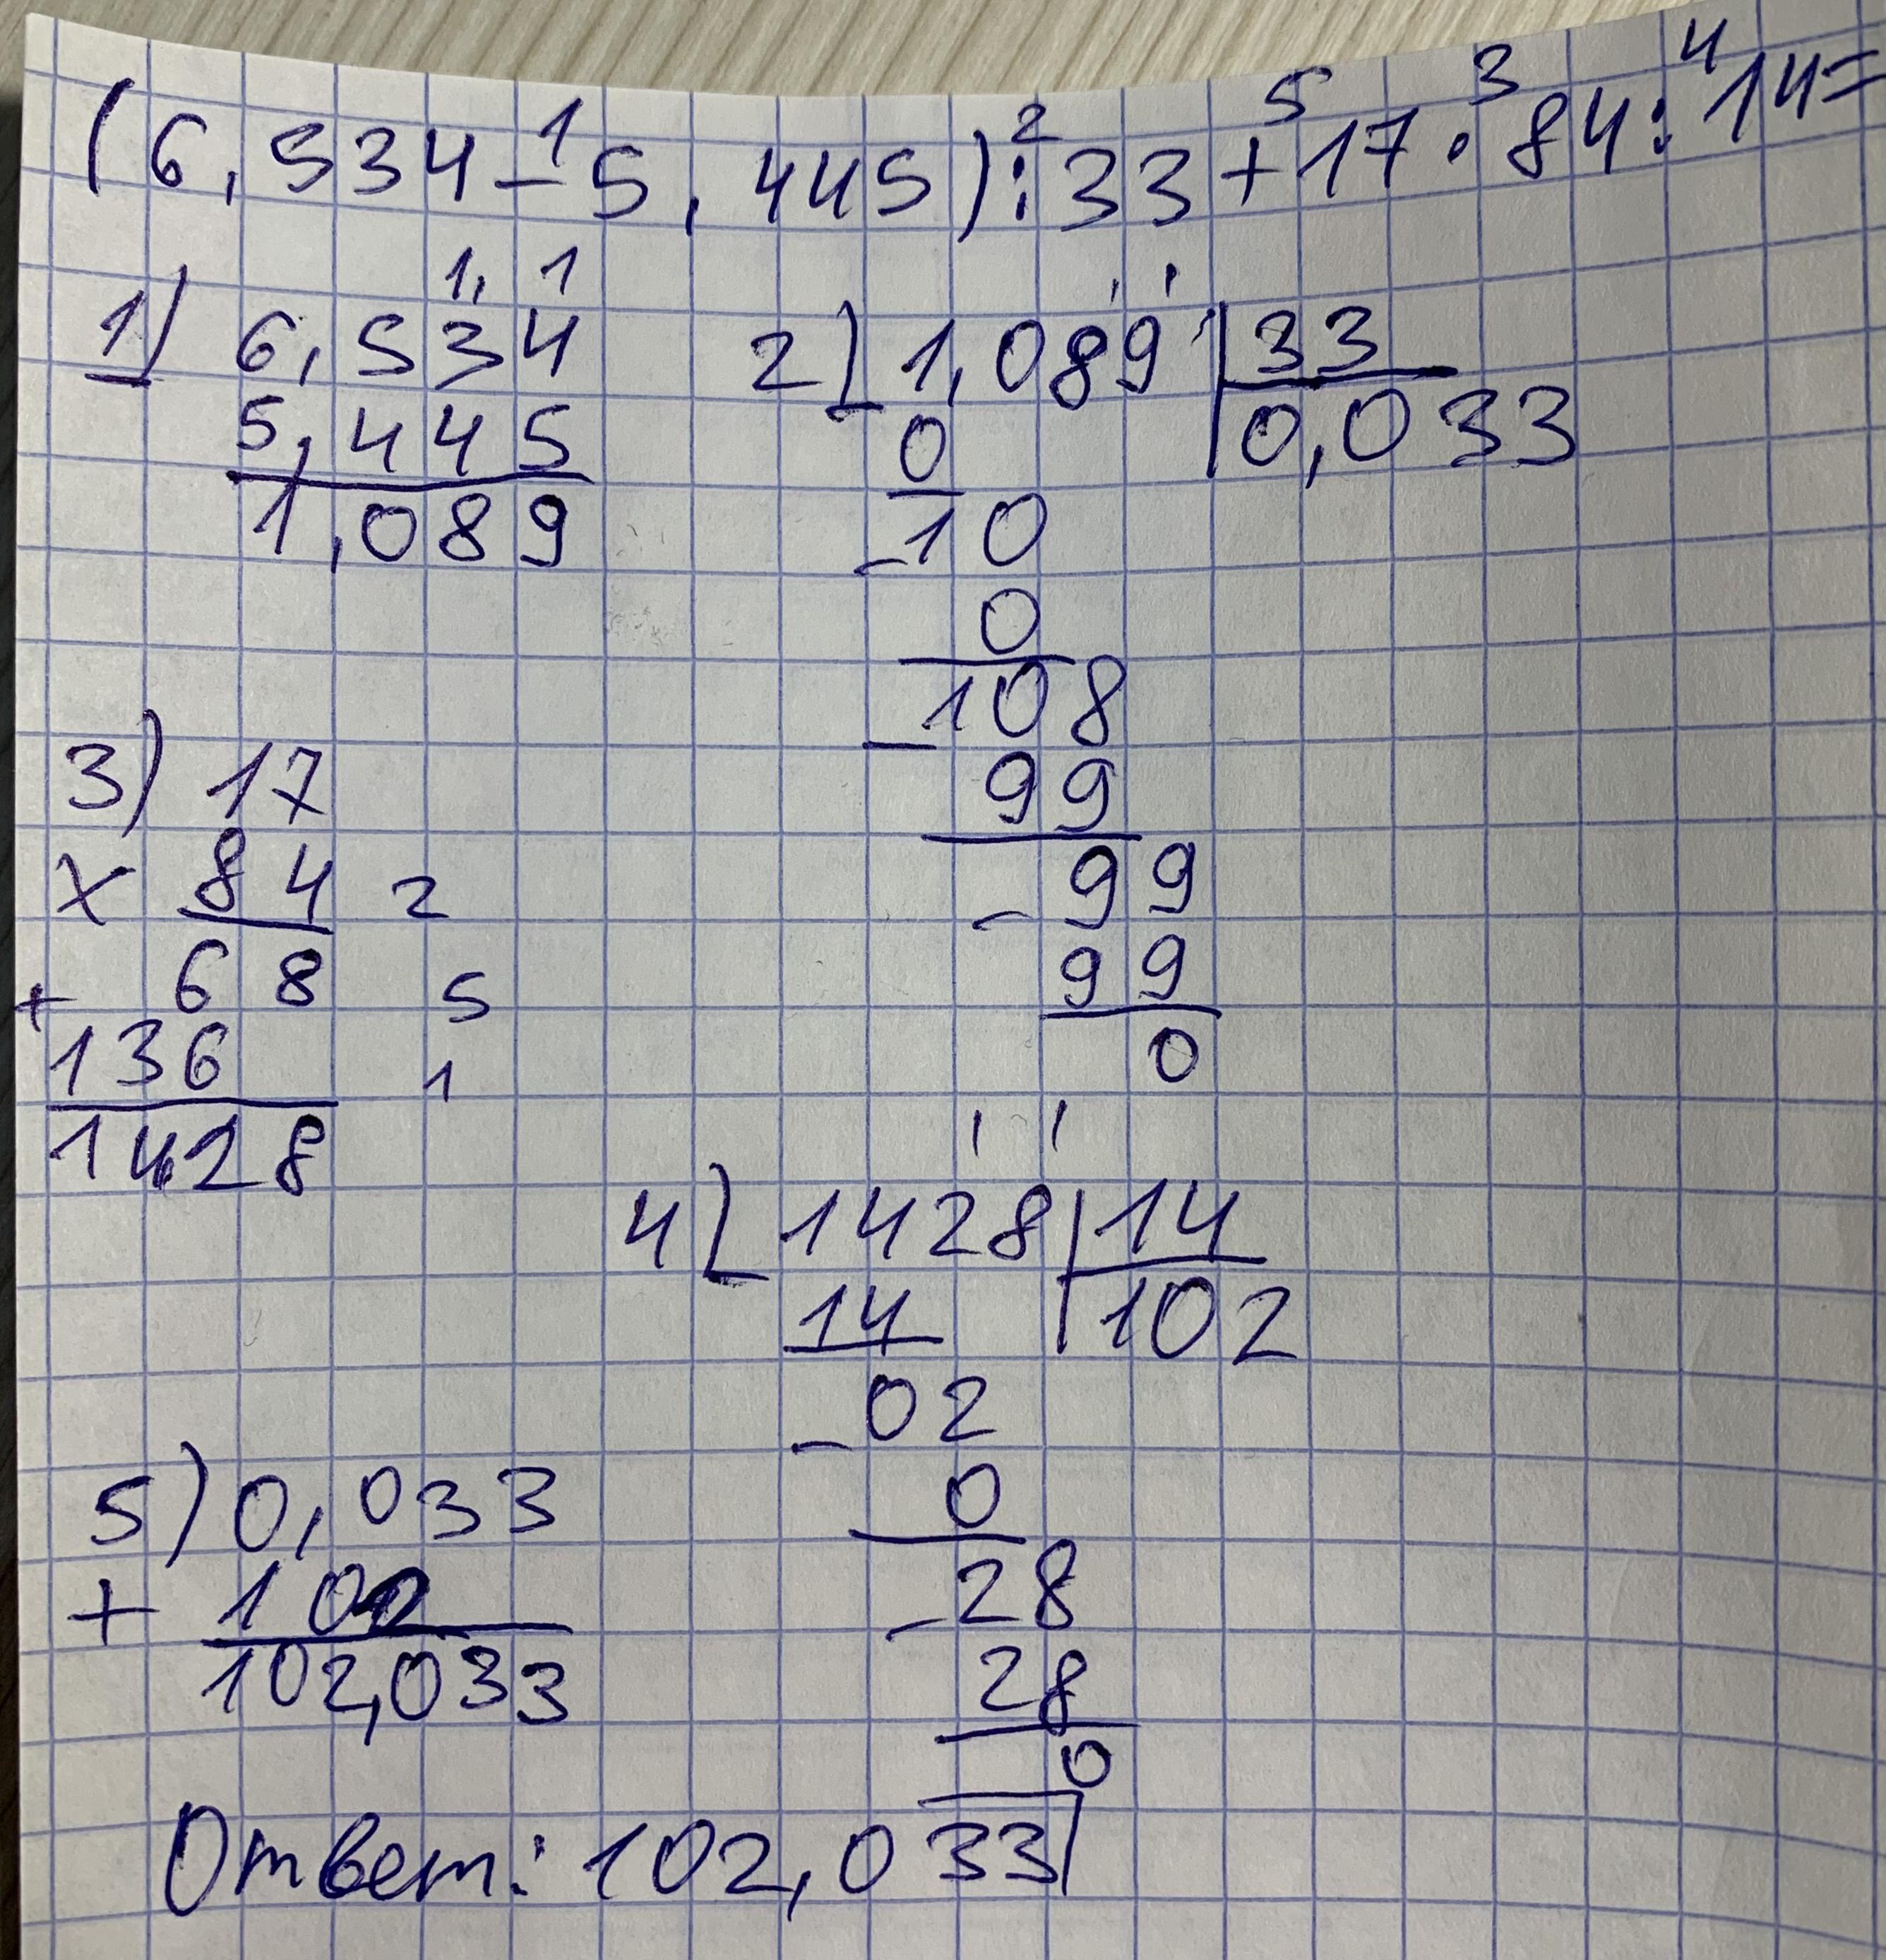 (6,534-5,445):33+17·84:14=
1 2 5 3 4
1) 6,534
5,445
1,089
2) 1,089 | 33
0 | 0,033
10
0
108
99
99
99
0
3) 17
x 84 2
68 5
+
136 1
1428
4) 1428 | 14
14 | 102
02
0
28
28
0
5) 0,033
+ 102
102,033
Ответ: 102,033